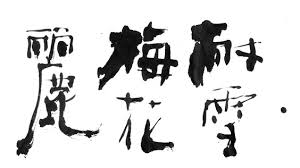 耐雪
梅花
麗